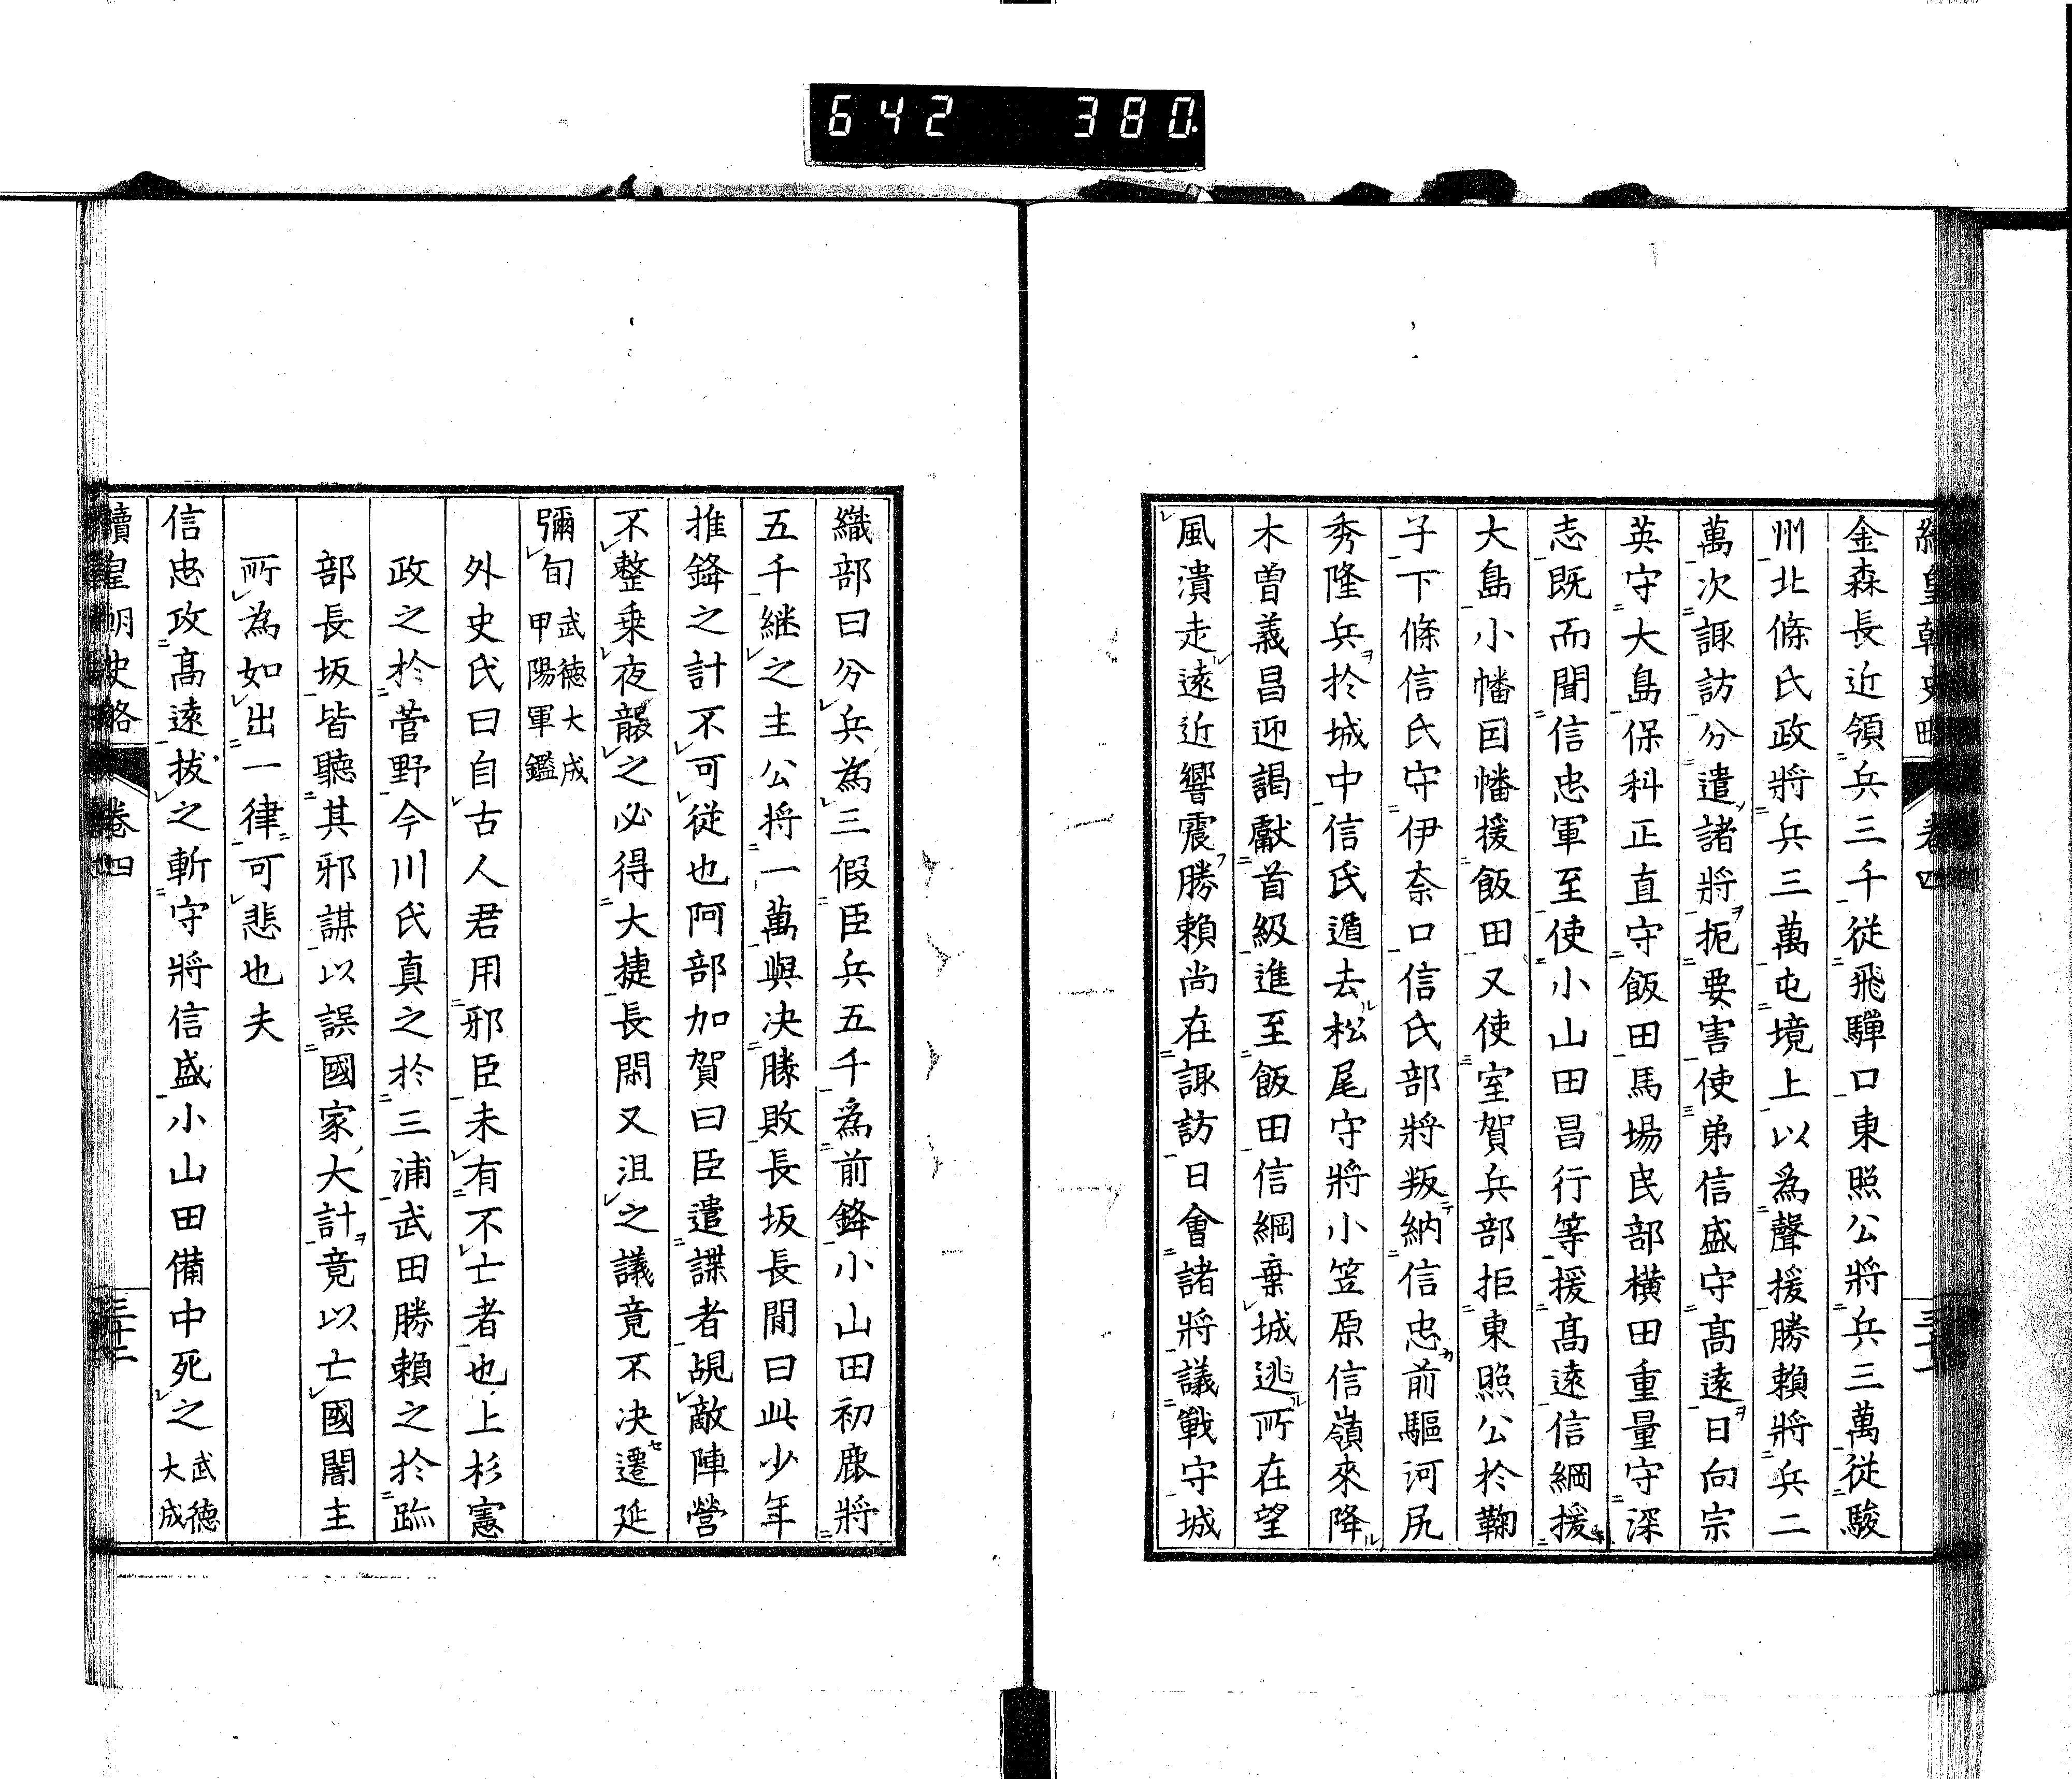 642 380
續皇朝史略 卷四 三十一
金森長近領兵三千從飛驒口東照公將兵三萬從駿
州北條氏政將兵三萬屯境上以爲聲援勝賴將兵二
萬次諏訪分遣諸將扼要害使弟信盛守高遠日向宗
英守大島保科正直守飯田馬場民部横田重量守深
志既而聞信忠軍至使小山田昌行等援高遠信綱援
大島小幡因幡援飯田又使室賀兵部拒東照公於鞠
子下條信氏守伊奈口信氏部將叛納信忠前驅河尻
秀隆兵於城中信氏遁去松尾守將小笠原信嶺來降
木曾義昌迎謁獻首級進至飯田信綱棄城逃所在望
風潰走遠近響震勝賴尚在諏訪日會諸將議戰守城
織部曰分兵為三假臣兵五千爲前鋒小山田初鹿將
五千継之主公将一萬與决勝敗長坂長間曰此少年
推鋒之計不可從也阿部加賀曰臣遣諜者覘敵陣營
不整乗夜襲之必得大捷長閑又沮之議竟不决遷延
彌旬 武德大成 甲陽軍鑑
外史氏曰自古人君用邪臣未有不亡者也上杉憲
政之於菅野今川氏真之於三浦武田勝賴之於跡
部長坂皆聽其邪謀以誤國家大計竟以亡國闇主
所為如出一律可悲也夫
信忠攻高遠拔之斬守將信盛小山田備中死之 武德 大成
續皇朝史略 卷四 三十二